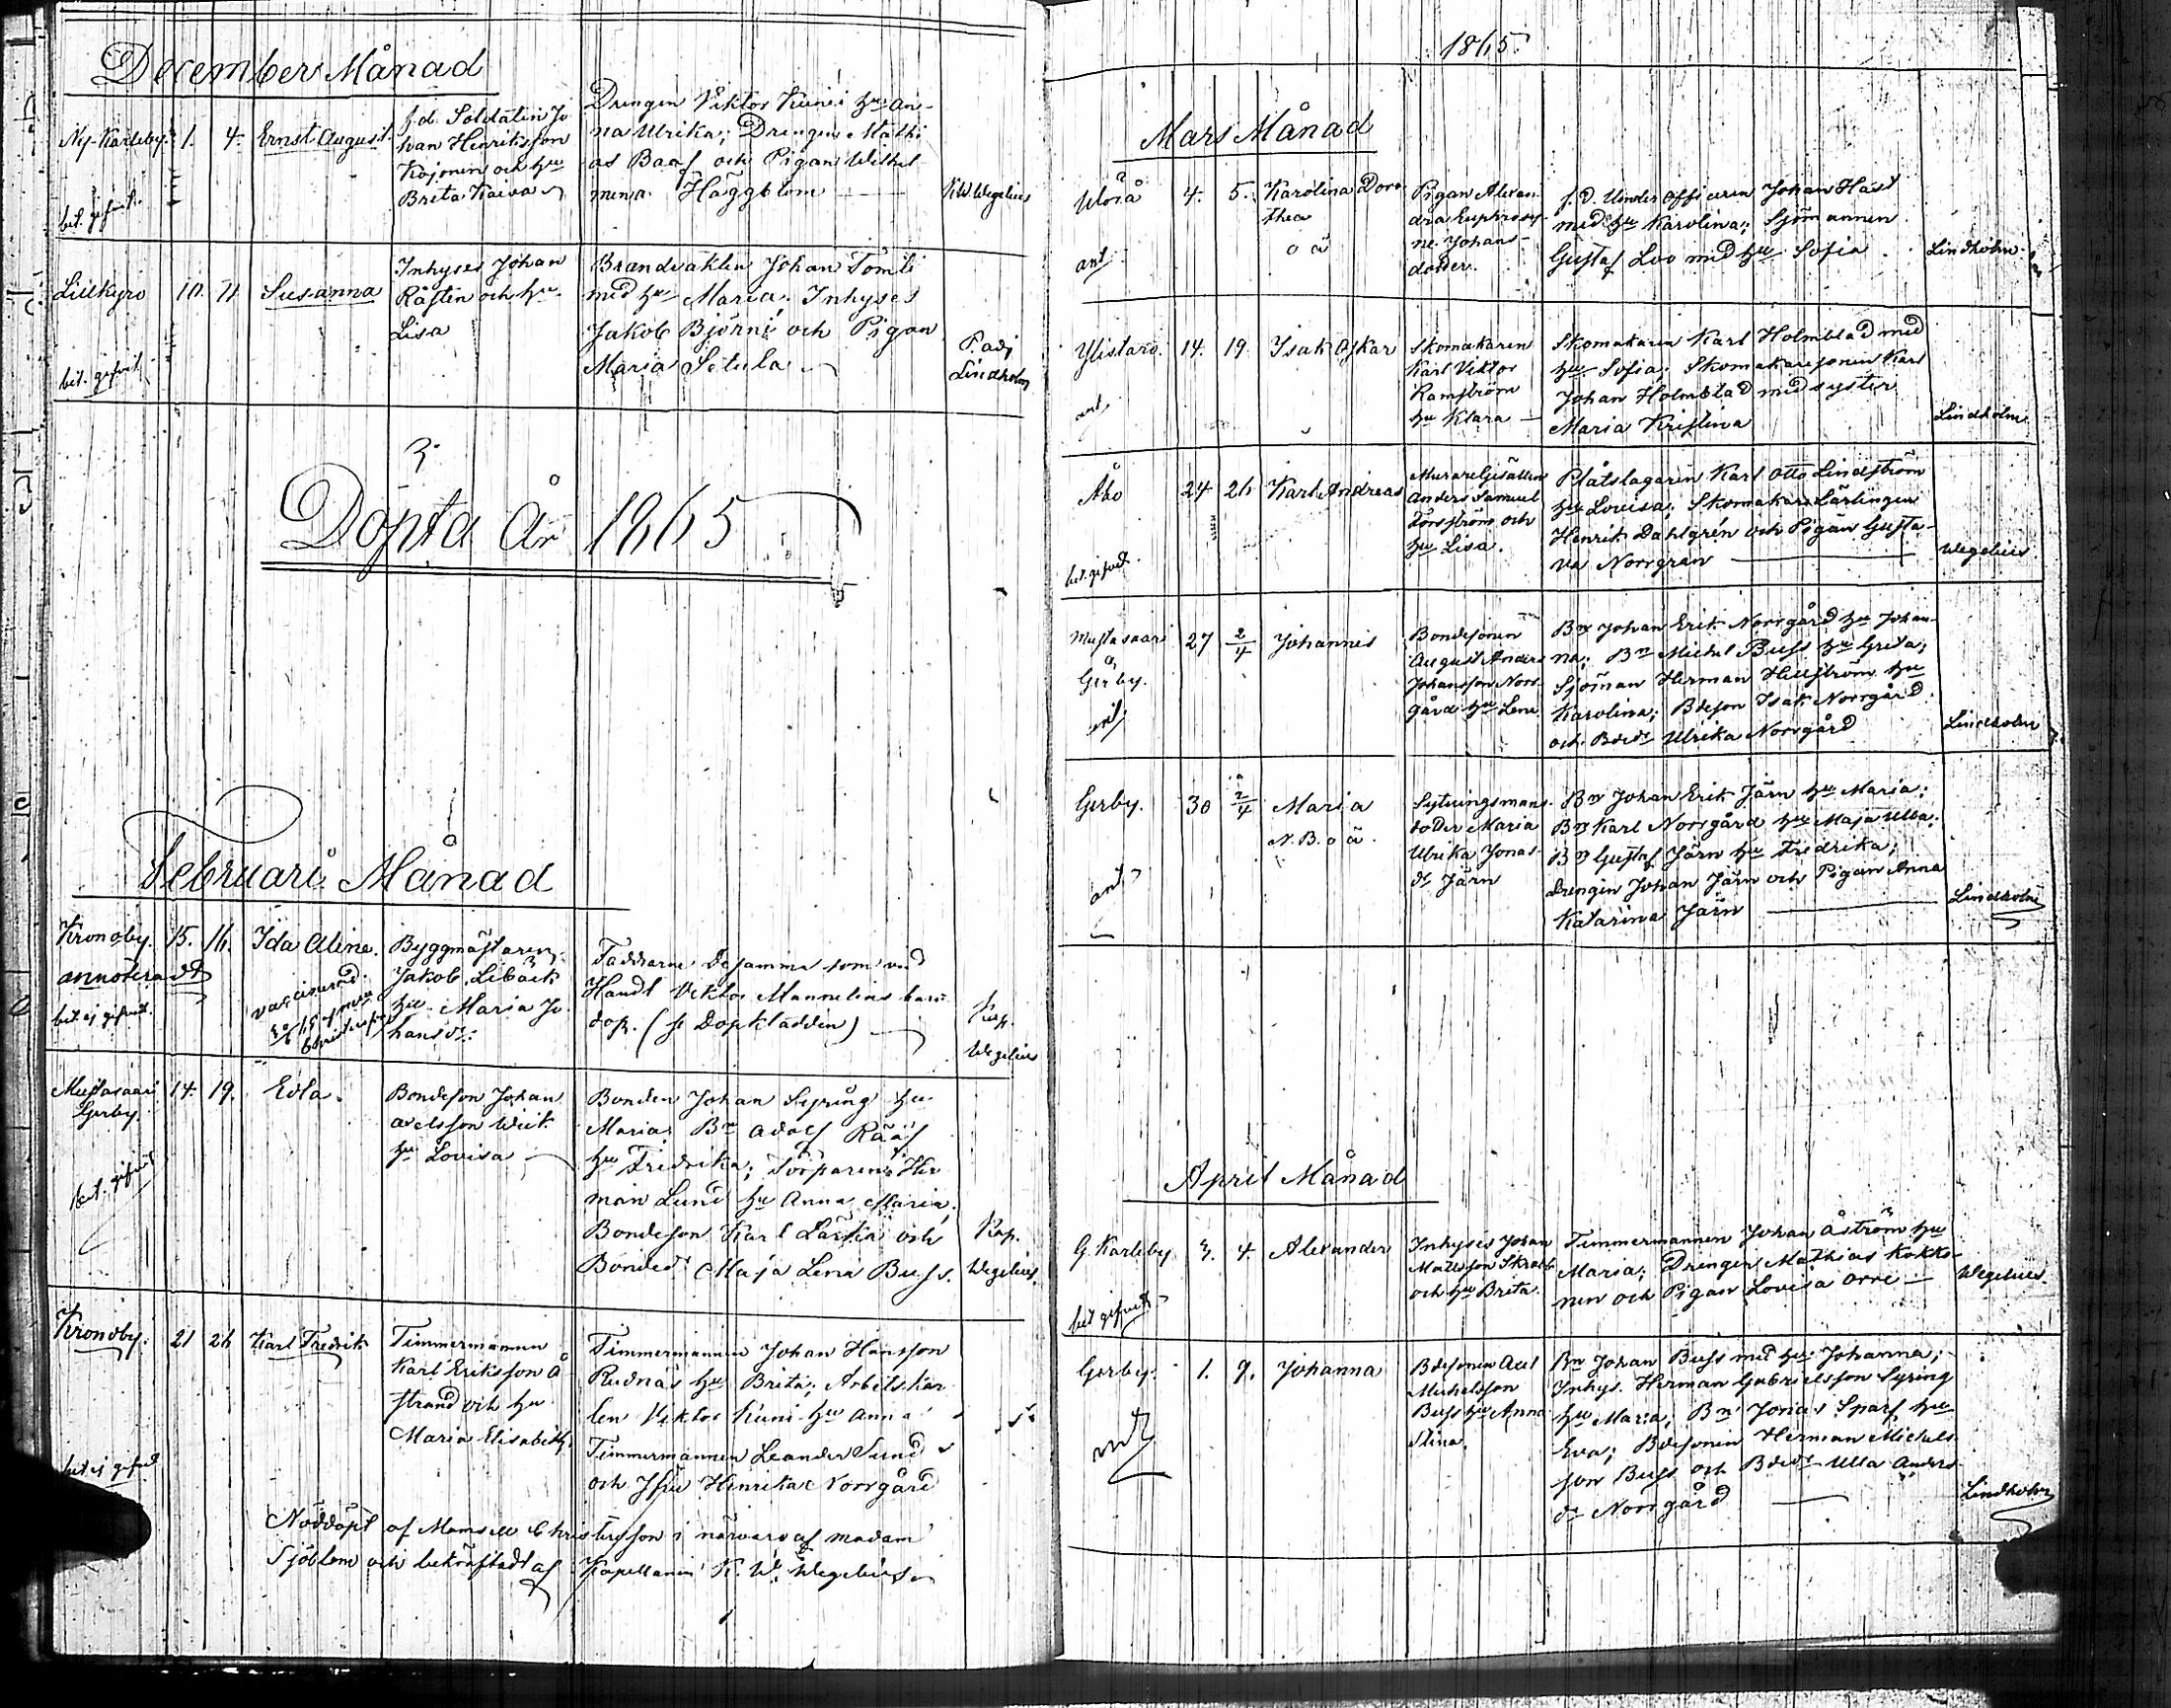 December Månad
Ny-Karleby. 1. 4. Ernst August.
f.d. Soldaten Jo
han Henriksson
Kojonen och hu
Brita Kaisa
Drengen Viktor Kuni hu An-
na Ulrika; Drengen Mathi
as Baaf och Pigan Wilhel
mina Häggblom
K.W. Wegelius
bet. gifvit.
Lillkyro 10. 11. Susanna
Inhyses Johan
Råstin och hu
Lisa
Brandvakten Johan Tomti
med hu Maria; Inhyses
Jakob Björni och Pigan
Maria Setula
P. adj
Lindholm
bet. gifvit.
Döpta År 1865
Februari Månad
Kronoby. 15. 16. Ida Aline.
annoteradt
bet. ej gifvit.
vaccinerad
Byggmästaren
Jakob Libäck
hu Maria Jo
hansdr:
Faddrarne Desamma som vid
Handl Viktor Mannelius barns
dop. (se Dopkladden)
Kap.
Wegelius
Mustasaari 14. 19. Edla.
Gerby.
bet. gifvit
Bondeson Johan
Axelsson Wiik
hu Lovisa
Bonden Johan Syring hu
Maria; Bn Adolf Rääf
hu Fredrika; Torparen Her
man Lund hu Anna Maria;
Bondeson Karl Lärka och
Bondedr Maja Lena Buss.
Kap.
Wegelius.
Kronoby. 21 26 Karl Fredrik
Timmermannen
Karl Eriksson Å
strand och hu
Maria Elisabeth
Timmermannen Johan Hansson
Rudnäs hu Brita; Arbetskar
len Viktor Kuni hu Anna
Timmermannen Leander Sund
och Jfru Henrika Norrgård
bet. ej gifvit
Nöddöpt af Mamsell Christersson i närvaro af madam
Sjöblom och bekräftadt af Kapellanen K. W. Wegelius
1865.
Mars Månad
Wörå 4. 5. Karolina Doro
thea
o ä
ant.
Pigan Alexan
dra Euphrosy-
ne Johans-
dotter.
f. d. Under Officeren Johan Häst
med hu Karolina; Sjömannen
Gustaf Loo med hu Sofia
Lindholm
Ylistaro. 14. 19. Isak Oskar
ant.
Skomakaren
Karl Viktor
Ramström
hu Klara
Skomakaren Karl Holmblad med
hu Sofia; Skomakaresonen Karl
Johan Holmblad med syster
Maria Kristina
Lindholm
Åbo 24 26 Karl Andreas
bet. gifvit.
Murare Gesällen
Anders Samuel
hu Lisa.
Plåtslagaren Karl Otto Lindström
hu Lovisa; Skomakare Lärlingen
Henrik Dahlgrén och Pigan Gusta-
va Norrgran
Wegelius
Mustasaari 27 2/4 Johannes
Gerby.
ant.
Bondesonen
August Anders
Johansson Norr-
gård hu Lena
Bn Johan Erik Norrgård hu Johan-
na; Bn Michel Buss hu Greta;
Sjöman Herman Hellström hu
Karolina; Bdeson Isak Norrgård
och Bdedr Ulrika Norrgård
Lindholm
Gerby. 30 2/4 Maria
N.B. o ä.
ant.
Sytningsmans-
doder Maria
Ulrika Jonas-
dr Järn
Bn Johan Erik Järn hu Maria;
Bn Karl Norrgård hu Maja Ulla;
Bn Gustaf Järn hu Fredrika;
Drengen Johan Järn och Pigan Anna
Katarina Järn
Lindholm
April Månad
G. Karleby 3. 4. Alexander
bet gifvit
Inhyses Johan
Mattsson
och hu Brita.
Timmermannen Johan Åström hu
Maria; Drengen Mathias Kokko-
nen och Pigan Lovisa Orre
Wegelius.
Gerby. 1. 9. Johanna
ant
Bdesonen Axel
Michelsson
Buss hu Anna
Stina.
Bn Johan Buss med hu Johanna;
Inhys. Herman Gabrielsson Syring
hu Maria; Bn Jonas Sparf hu
Eva; Bdesonen Herman Michels
son Buss och Bdedr Ulla Anders-
dr Norrgård
Lindholm